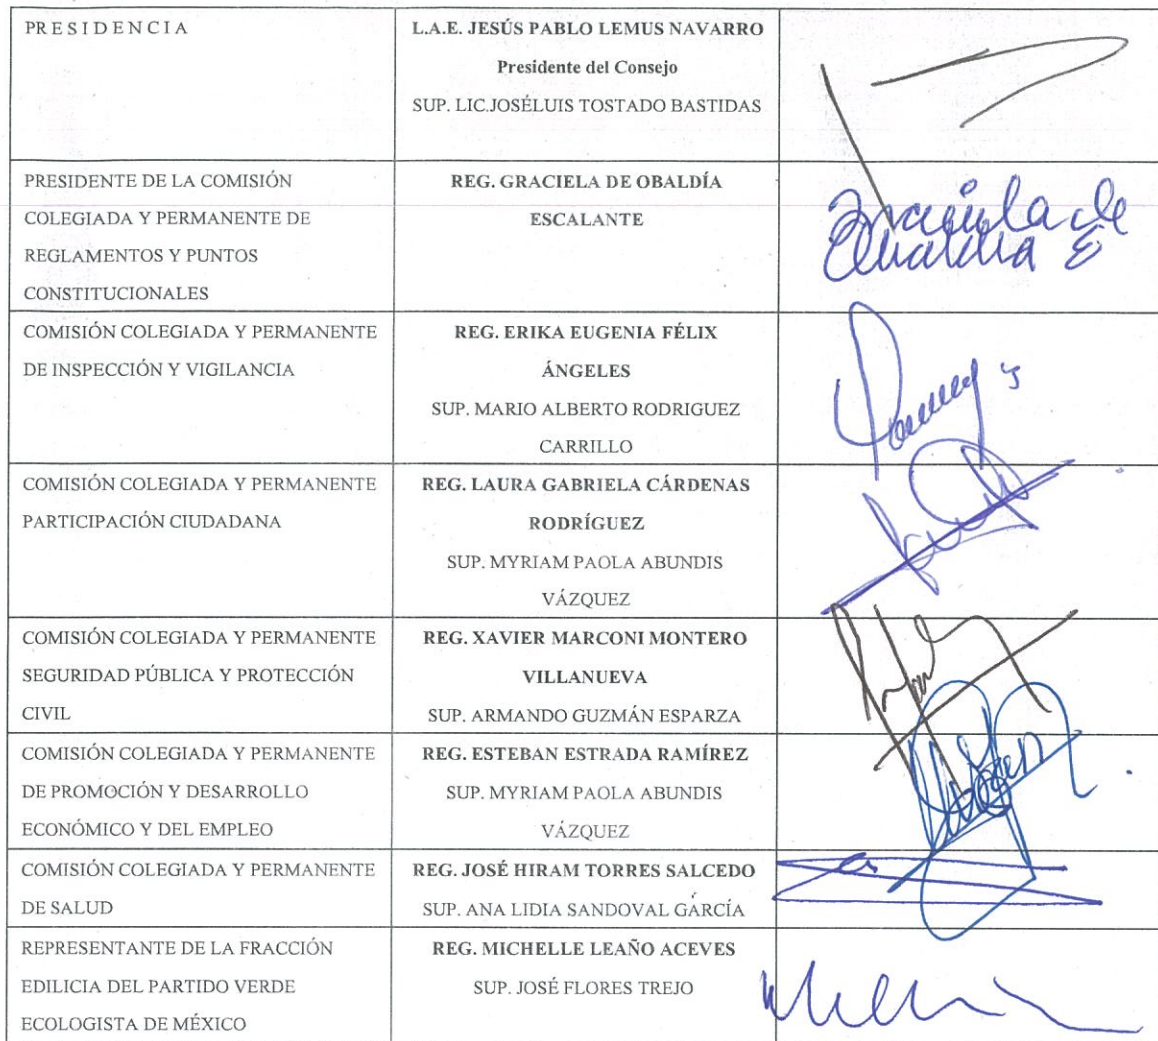 PRESIDENCIA
L.A.E. JESÚS PABLO LEMUS NAVARRO
Presidente del Consejo
SUP. LIC.JOSÉLUIS TOSTADO BASTIDAS
PRESIDENTE DE LA COMISIÓN
COLEGIADA Y PERMANENTE DE
REGLAMENTOS Y PUNTOS
CONSTITUCIONALES
REG. GRACIELA DE OBALDÍA
ESCALANTE
Graciela de
Obaldia E
COMISIÓN COLEGIADA Y PERMANENTE
DE INSPECCIÓN Y VIGILANCIA
REG. ERIKA EUGENIA FÉLIX
ÁNGELES
SUP. MARIO ALBERTO RODRIGUEZ
CARRILLO
COMISIÓN COLEGIADA Y PERMANENTE
PARTICIPACIÓN CIUDADANA
REG. LAURA GABRIELA CÁRDENAS
RODRÍGUEZ
SUP. MYRIAM PAOLA ABUNDIS
VÁZQUEZ
COMISIÓN COLEGIADA Y PERMANENTE
SEGURIDAD PÚBLICA Y PROTECCIÓN
CIVIL
REG. XAVIER MARCONI MONTERO
VILLANUEVA
SUP. ARMANDO GUZMÁN ESPARZA
COMISIÓN COLEGIADA Y PERMANENTE
DE PROMOCIÓN Y DESARROLLO
ECONÓMICO Y DEL EMPLEO
REG. ESTEBAN ESTRADA RAMÍREZ
SUP. MYRIAM PAOLA ABUNDIS
VÁZQUEZ
COMISIÓN COLEGIADA Y PERMANENTE
DE SALUD
REG. JOSÉ HIRAM TORRES SALCEDO
SUP. ANA LIDIA SANDOVAL GARCÍA
REPRESENTANTE DE LA FRACCIÓN
EDILICIA DEL PARTIDO VERDE
ECOLOGISTA DE MÉXICO
REG. MICHELLE LEAÑO ACEVES
SUP. JOSÉ FLORES TREJO